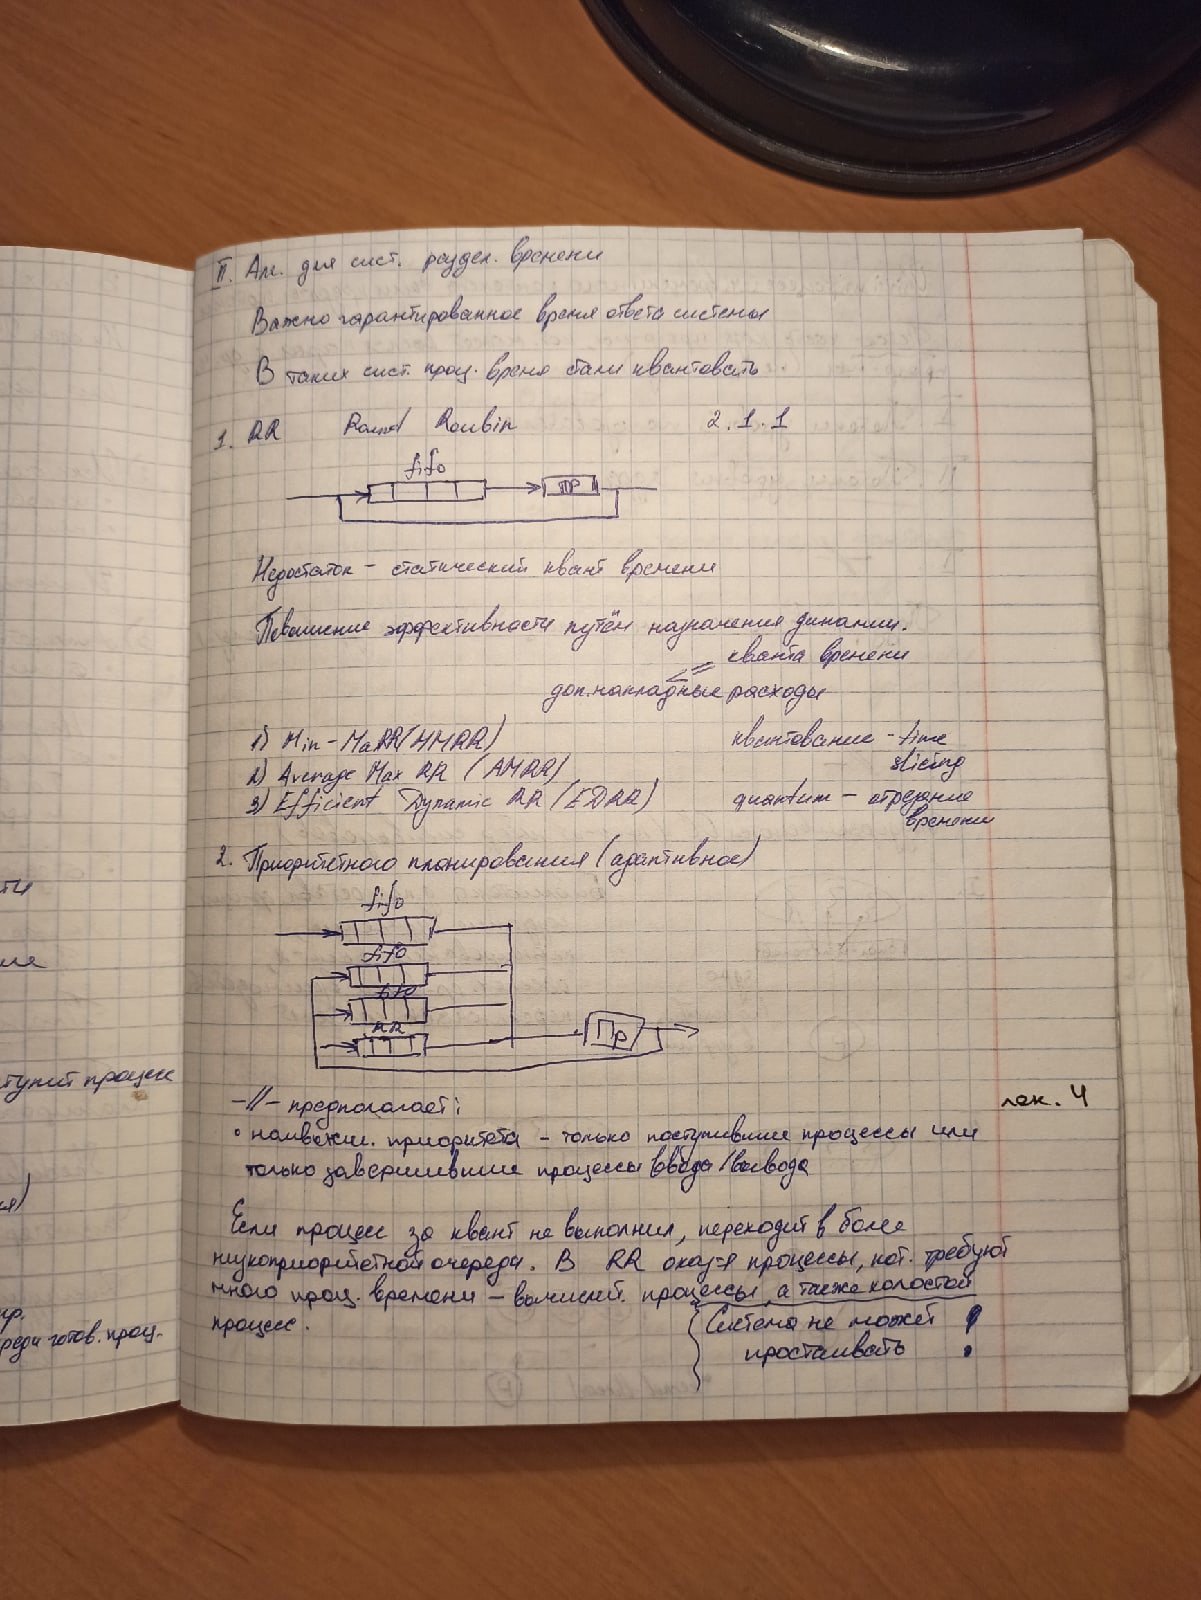 II. Алг. для сист. раздел. времени
Важно гарантированное время ответа системы
В таких сист. проц. время стали квантовать
1. RR Round Roubin 2.1.1
fifo
ПР
Недостаток - статический квант времени
Повышение эффективности путём назначения динамич.
кванта времени
доп. накладные расходы
1) Min-MaxRR(MMRR) квантование - time
slicing
2) Average Max RR (AMRR)
3) Efficient Dynamic RR (EDRR) quantum - отрезание
времени
2. Приоритетного планирования (адаптивное)
fifo
fifo
fifo
RR
Пр
-//- предполагает: лек. 4
• наивысш. приоритета - только поступившие процессы или
только завершившие процессы ввода/вывода
Если процесс за квант не выполнил, переходит в более
низкоприоритетной очереди. В RR оказ-я процессы, кот. требуют
много проц. времени - вычислит. процессы, а также холостой
процесс.
Система не может !
простаивать
ти
ие
ступит процесс
ия)
пр.
реди готов. проц.